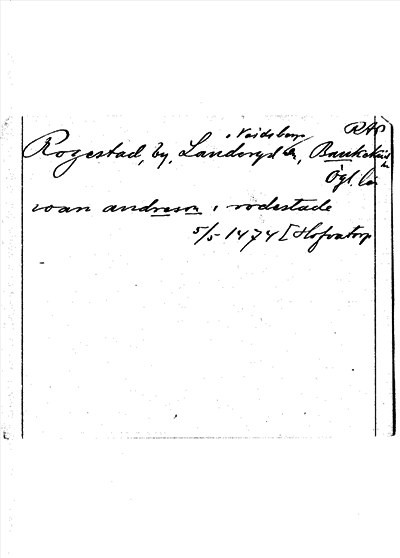 RAP
Rogestad, by, Landeryd sn, Bankekind
Ögl. län
roan andreson i rodestade
5/5 1474 [Hofvatorp